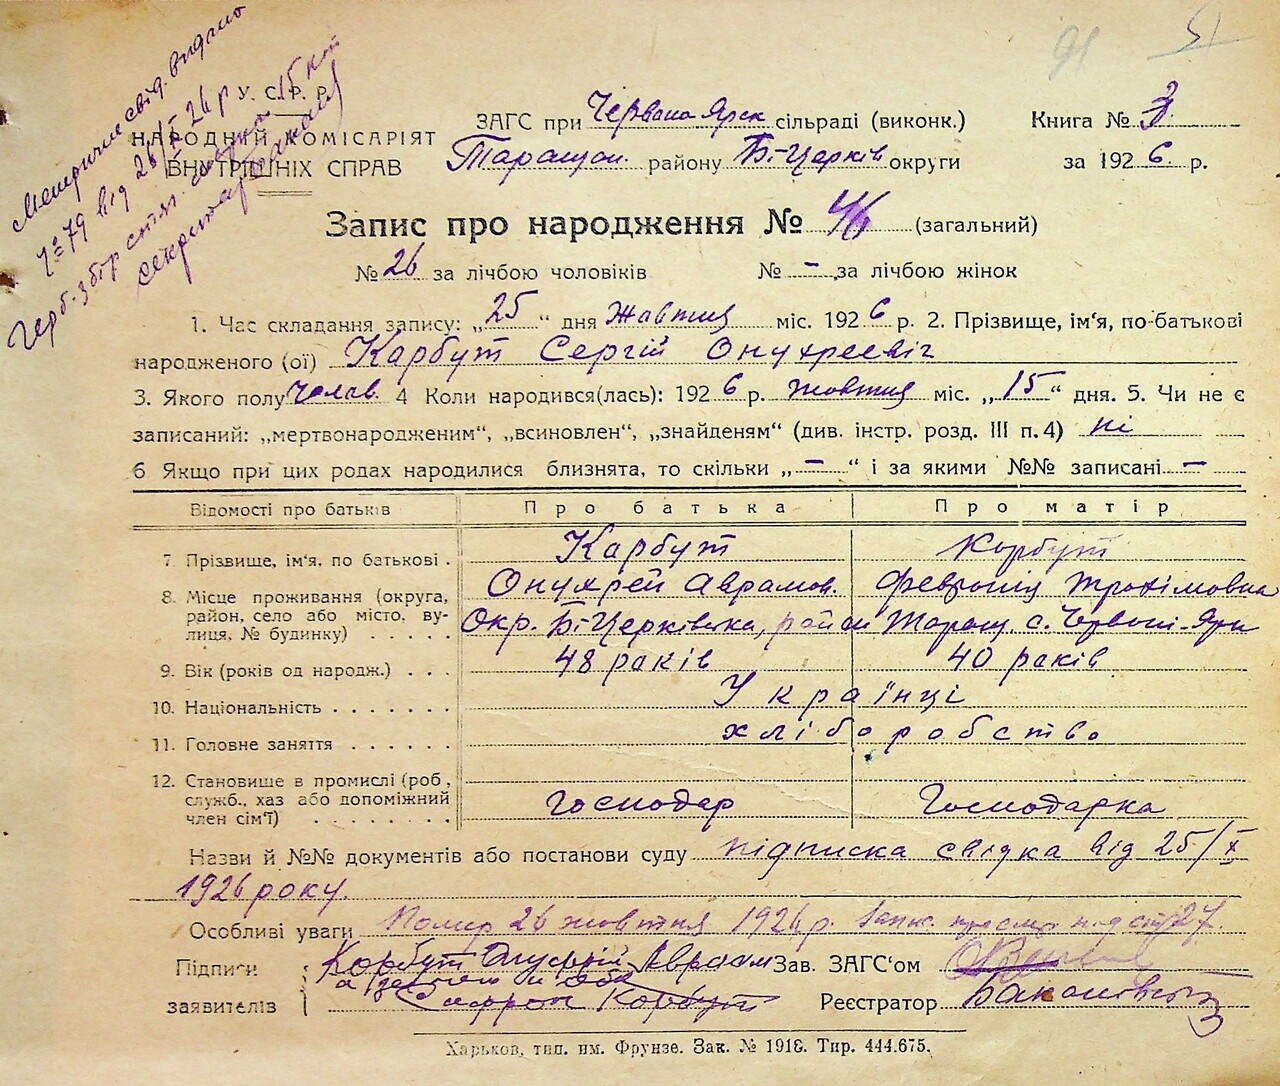 91 51
Метричне свід. видано
№ 79 від 26/X 26 р
Герб. збір 15 коп
секретар
У. С. Р. Р.
НАРОДНИЙ КОМІСАРІЯТ
ВНУТРІШНІХ СПРАВ
ЗАГС при Червона Ярск сільраді (виконк.)
Таращан. району Б-Церків округи
Книга № 3
за 1926 р.
Запис про народження № 46 (загальний)
№ 26 за лічбою чоловіків № - за лічбою жінок
1. Час складання запису: „25“ дня Жовтня міс. 1926 р. 2. Прізвище, ім'я, по-батькові
народженого (ої) Карбут Сергій Онухреевіч
3. Якого полу Чолов. 4 Коли народився(лась): 1926 р. жовтня міс. „15“ дня. 5. Чи не є
записаний: „мертвонародженим“, „всиновлен“, „знайденям“ (див. інстр. розд. III п. 4) ні
6 Якщо при цих родах народилися близнята, то скільки „-“ і за якими №№ записані -
Відомості про батьків Про батька Про матір
7 Прізвище, ім'я, по батькові . Карбут Корбут
Онухрей Аврамов. Февронія Трохімовна
8. Місце проживання (округа, район, село або місто, вулиця, № будинку) Окр. Б-Церківська, район Таращ. с. Червоні-Яри
9. Вік (років од народж.) . . . 48 раків 40 раків
10. Національність . . . . . . . Українці
11. Головне заняття . . . . . . хліборобство
12. Становище в промислі (роб., служб., хаз або допоміжний член сім'ї) . . . . . . . Господар Господарка
Назви й №№ документів або постанови суду підписка свідка від 25/X
1926 року.
Особливі уваги Помер 26 жовтня 1926 р. Запис. під 27.
Підписи Корбут Аврам Зав. ЗАГС'ом
заявителів Корбут Реєстратор
Харьков, тип. им. Фрунзе. Зак. № 1918. Тир. 444.675.